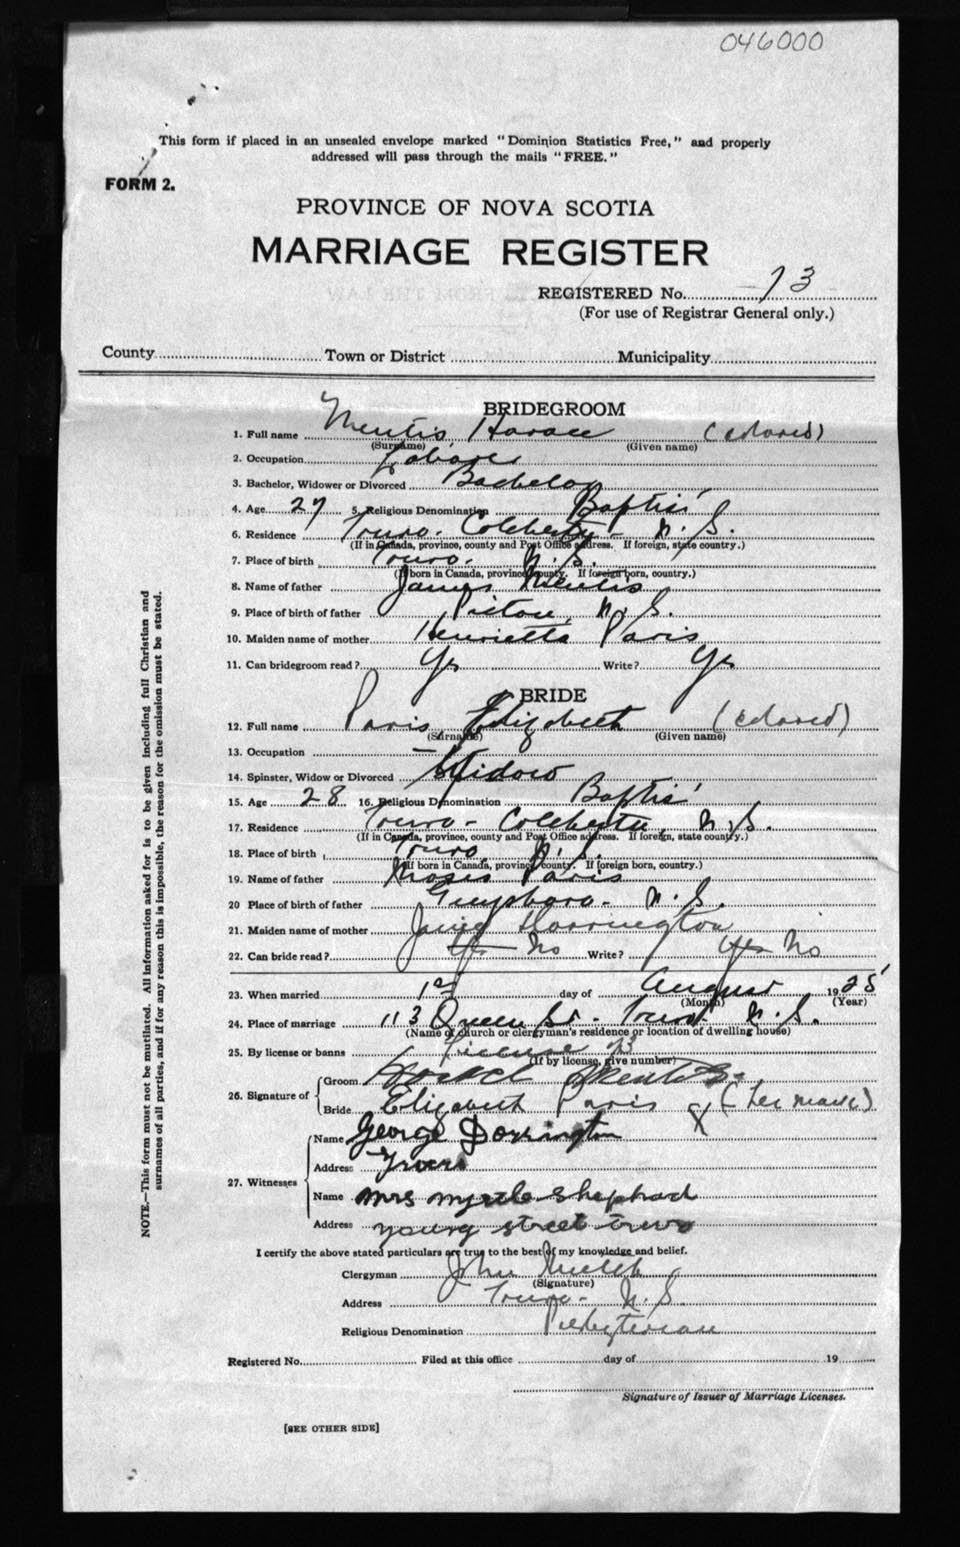 046000
This form if placed in an unsealed envelope marked "Dominion Statistics Free," and properly
addressed will pass through the mails "FREE."
FORM 2.
PROVINCE OF NOVA SCOTIA
MARRIAGE REGISTER
REGISTERED No. 73
(For use of Registrar General only.)
County Town or District Municipality
BRIDEGROOM
1. Full name Mentis, Horace (colored)
(Surname) (Given name)
2. Occupation Laborer
3. Bachelor, Widower or Divorced Bachelor
4. Age 27 5. Religious Denomination Baptist
6. Residence Truro. Colchester - N. S.
(If in Canada, province, county and Post Office address. If foreign, state country.)
7. Place of birth Truro. N. S.
(If born in Canada, province, county. If foreign born, country.)
8. Name of father James Mentis
9. Place of birth of father Pictou, N. S.
10. Maiden name of mother Henrietta Paris
11. Can bridegroom read? Yes Write? Yes
BRIDE
12. Full name Paris Elizabeth (colored)
(Surname) (Given name)
13. Occupation —
14. Spinster, Widow or Divorced Widow
15. Age 28 16. Religious Denomination Baptist
17. Residence Truro - Colchester, N. S.
(If in Canada, province, county and Post Office address. If foreign, state country.)
18. Place of birth Truro, N. S.
(If born in Canada, province, county. If foreign born, country.)
19. Name of father Moses Paris
20 Place of birth of father Guysboro - N. S.
21. Maiden name of mother Harrington
22. Can bride read? Yes No Write? Yes No
23. When married 1st day of August 1925
(Month) (Year)
24. Place of marriage 113 Queen St. - Truro N. S.
(Name of church or clergyman's residence or location of dwelling house)
25. By license or banns License
(If by license, give number)
26. Signature of Groom Mentis
Bride Elizabeth Paris X (her mark)
27. Witnesses Name George Dorrington
Address Truro
Name Mrs Myrtle Shephard
Address young street truro
I certify the above stated particulars are true to the best of my knowledge and belief.
Clergyman John
(Signature)
Address Truro - N. S.
Religious Denomination Presbyterian
Registered No. Filed at this office day of 19
Signature of Issuer of Marriage Licenses.
[SEE OTHER SIDE]
NOTE.—This form must not be mutilated. All information asked for is to be given including full Christian and
surnames of all parties, and if for any reason this is impossible, the reason for the omission must be stated.